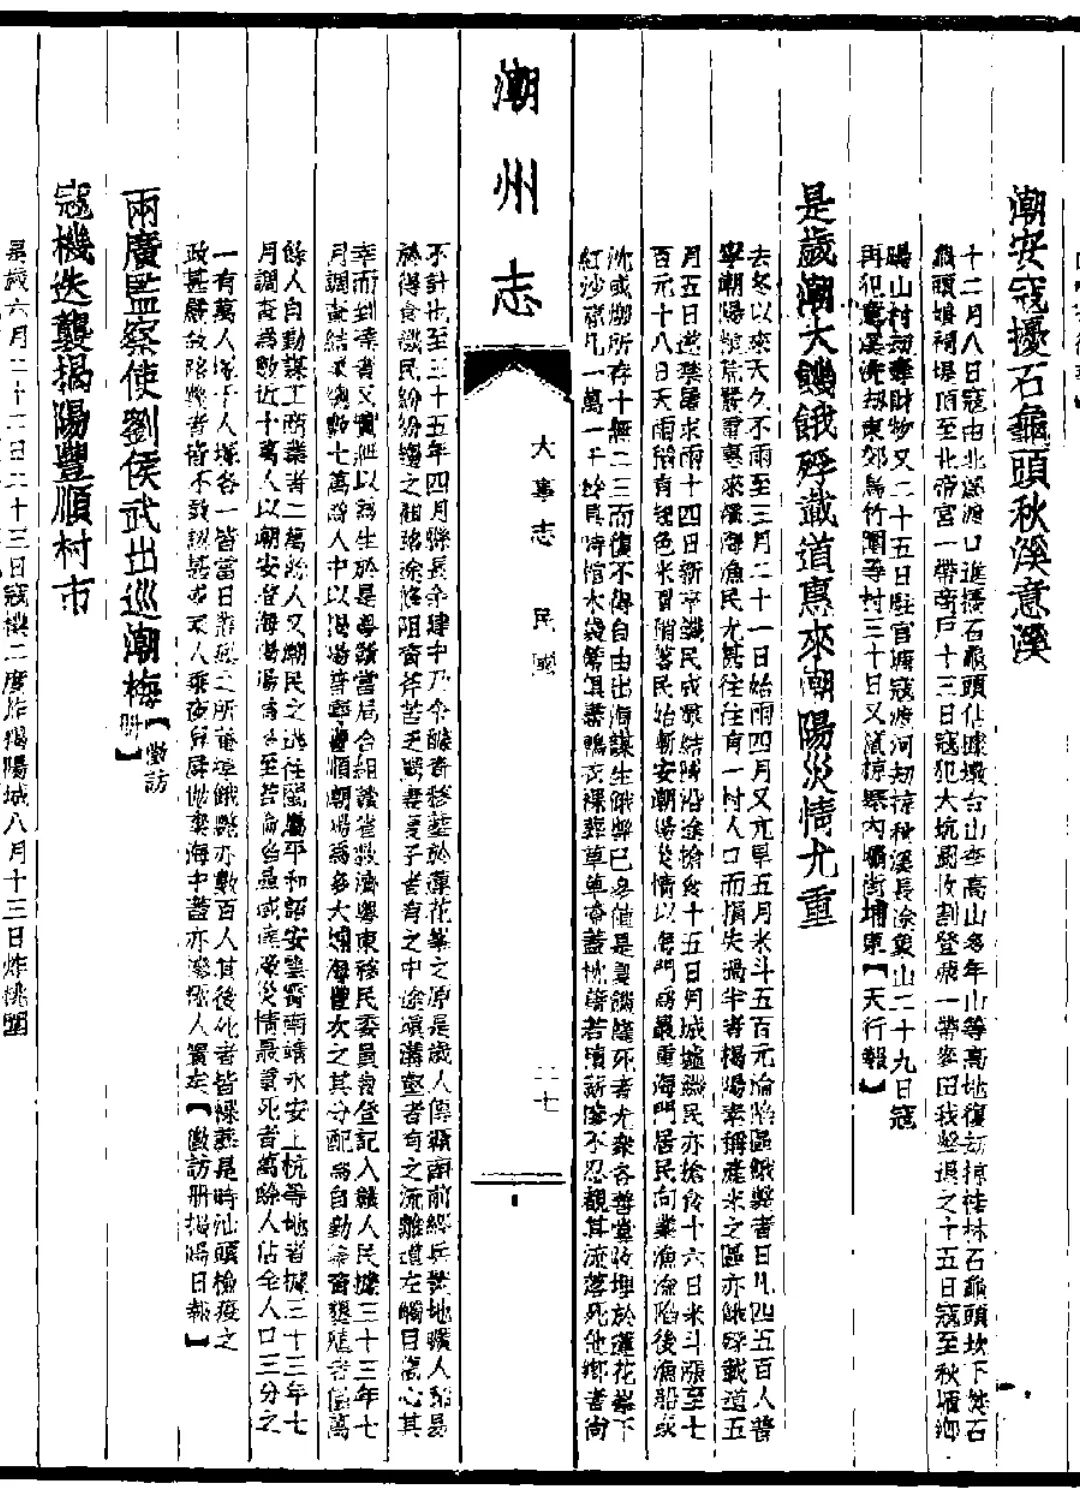 潮安寇擾石龜頭秋溪意溪
十二月八日寇由北溪渡口進擾石龜頭佔據墩台山李高山多年山等高地復劫掠桂林石龜頭坎下獎石
龜頭娘祠堤頂至北帝宮一帶商戶十三日寇犯大坑圍收割登榮一帶麥田我擊退之十五日寇至秋塘鄉
山村劫奪財物又二十五日駐官塘寇渡河劫掠秋溪長涂象山二十九日寇
再犯意溪洗劫東郊烏竹圍等村三十日又竄掠縣內壩街埔東【天行報】
是歲潮大饑餓殍載道惠來潮陽災情尤重
去冬以來天久不雨至三月二十一日始雨四月又亢旱五月米斗五百元淪陷區餓斃者日凡四五百人普
寧潮陽饑荒嚴重惠來濱海漁民尤甚往往有一村人口而損失過半者揭陽素稱產米之區亦餓殍載道五
月五日遂禁屠求雨十四日新亨饑民成眾結隊沿途搶食十五日月城墟饑民亦搶食十六日米斗漲至七
百元十八日天雨稻有起色米價稍落民始漸安潮陽災情以海門為最重海門居民向業漁淪陷後漁船或
沈或燬所存十無二三而復不得自由出海謀生餓斃已多值是夏饑饉死者尤眾各善堂收埋於蓮花峯下
紅沙者凡一萬一千餘具時棺木袋席俱盡鶉衣裸葬草草壅蓋枕藉若積薪慘不忍觀其流落死他鄉者尚
潮州志
大事志　民國
二七
不計也至三十五年四月縣長余建中乃令醵資移塟於蓮花峯之原是歲人傳贛南前經兵燹地曠人稀易
於得食饑民紛紛鬻之祖路途修阻資斧苦乏鬻妻子者有之中途填溝壑者有之流離道左觸目傷心其
幸而到達者又實無以為生於是粵贛當局合組贛省救濟粵東移民委員會登記入贛人民據三十三年七
月調查結果總數七萬餘人中以揭陽普寧豐順潮陽為多大埔海豐次之其分配為自動集資墾殖者僅萬
餘人自動謀工商業者二萬餘人又潮民之逃往閩屬平和詔安雲霄南靖永安上杭等地者據三十三年七
月調查為數近十萬人以潮安澄海揭陽等縣至若南澳災情最重死者萬餘人佔全人口三分之
一有萬人塚千人塚各一皆當日叢葬之所黃岡餓斃亦數百人其後死者皆裸葬是時汕頭檢疫之
政甚嚴故路斃者皆不敢認甚或天人乘夜舁屍拋棄海中蓋亦慘絕人寰矣【徵訪册揭陽日報】
兩廣監察使劉侯武出巡潮梅【徵訪册】
寇機迭襲揭陽豐順村市
是歲六月二十二日二十三日寇機二度炸揭陽城八月十三日炸桃圍